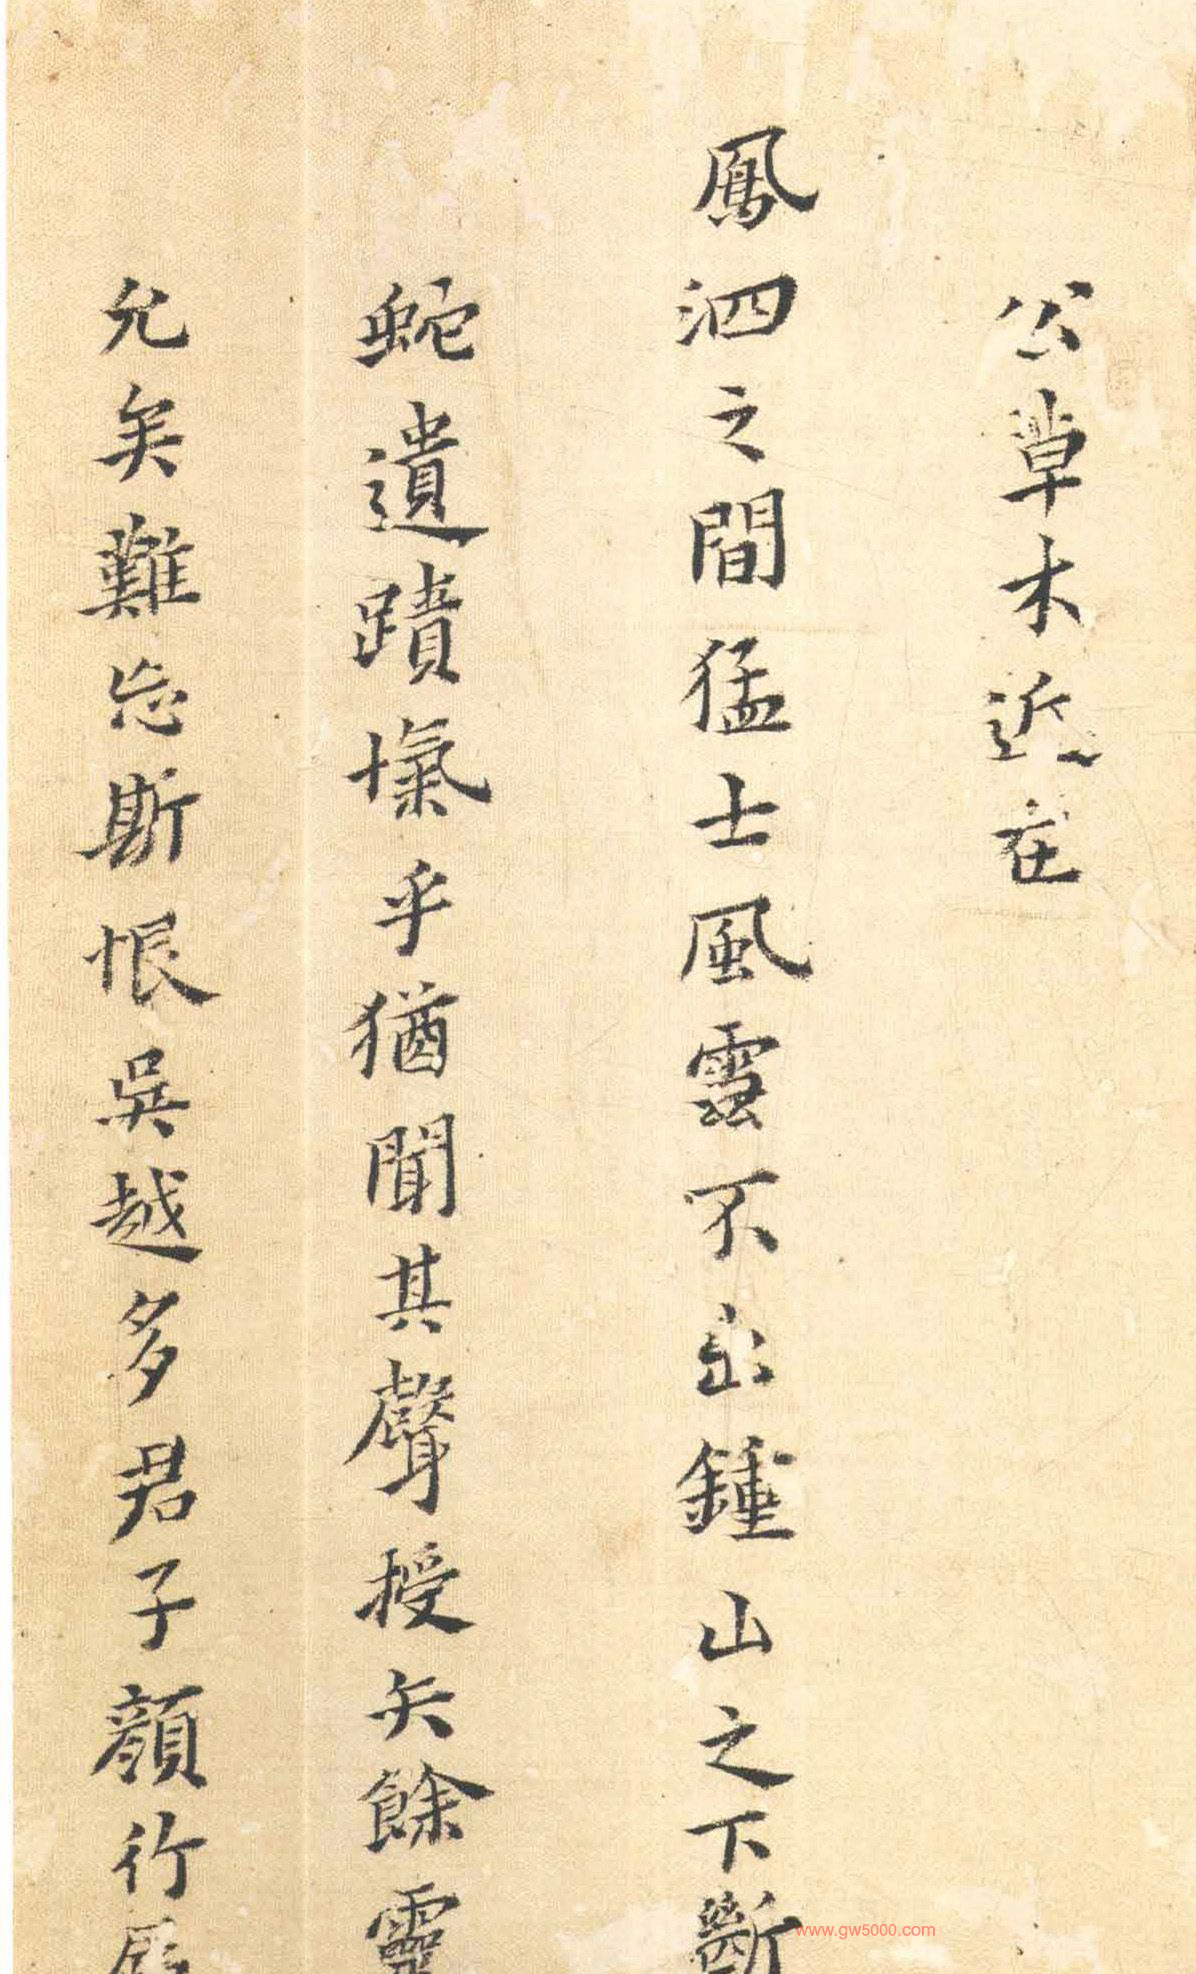 公草木近在
鳳泗之間猛士風雲不出鍾山之下斷
蛇遺蹟愾乎猶聞其聲授矢餘靈
允矣難忘斯恨吳越多君子顏行
www.gw5000.com